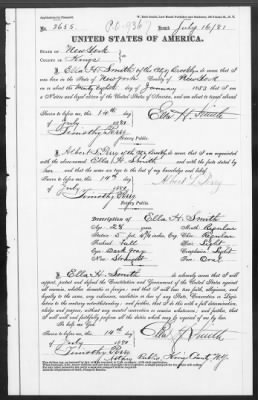 No. 2655 Issued July 16/81
UNITED STATES OF AMERICA.
STATE OF New York
COUNTY OF Kings
I, Ella H. Smith of the City Brooklyn do swear that I
was born in the State of New York, County of New York
on the twenty eighth day of January 1853 that I am
a Native and loyal citizen of the United States of America, and am about to travel abroad
Sworn to before me, this 14th day
of July 1881 Ella H. Smith
Timothy Perry
Notary Public
I, Albert L. Perry of the City Brooklyn do swear that I am acquainted
with the above-named Ella H. Smith and with the facts stated by
her and that the same are true to the best of my knowledge and belief.
Sworn to before me, this 14th day
of July 1881 Albert L. Perry
Timothy Perry
Notary Public
Description of Ella H. Smith
Age: 28 years Mouth: Regular
Stature: 5 feet Chin: Regular
Forehead: Full Hair: Light
Eyes: Dark Gray Complexion: Light
Nose: Straight Face: Oval
I, Ella H. Smith do solemnly swear that I will
support, protect and defend the Constitution and Government of the United States against
all enemies, whether domestic or foreign; and that I will bear true faith, allegiance, and
loyalty to the same, any ordinance, resolution or law of any State, Convention or Legis-
lature to the contrary notwithstanding; and further, that I do this with a full determination,
pledge and purpose, without any mental reservation or evasion whatsoever; and further, that
I will well and faithfully perform all the duties which may be required of me by law
So help me God.
Sworn to before me, this 14th day
of July 1881 Ella H. Smith
Timothy Perry
Notary Public, Kings County N.Y.